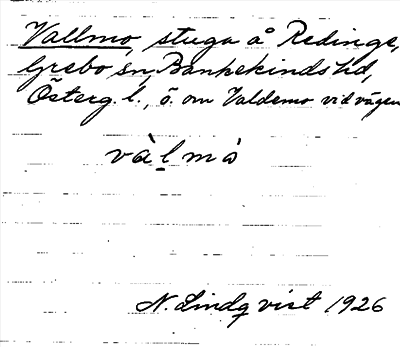 Vallmo, stuga å Redinge,
Grebo sn, Bankekinds hd,
Österg. l., ö. om Valdemo vid vägen
vàlmȯ
N. Lindqvist 1926